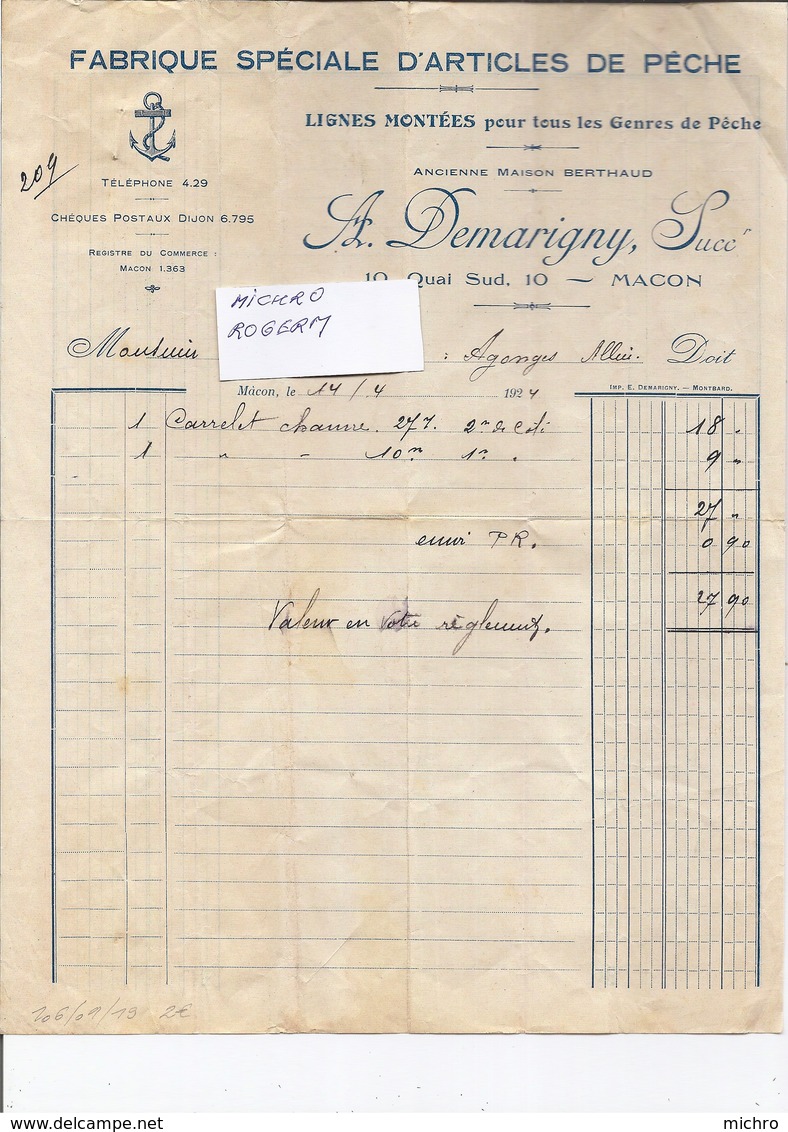 FABRIQUE SPÉCIALE D'ARTICLES DE PÊCHE
LIGNES MONTÉES pour tous les Genres de Pêche
209
TÉLÉPHONE 4.29
CHÉQUES POSTAUX DIJON 6.795
REGISTRE DU COMMERCE :
MACON 1.363
ANCIENNE MAISON BERTHAUD
A. Demarigny, Succr
10, Quai Sud, 10 — MACON
MICHRO
ROGERM
Monsieur : Agonges Allier. Doit
Mâcon, le 14/4 1924
IMP. E. DEMARIGNY. — MONTBARD.
1 Carrelet chanvre. 27 2m de côté 18 "
1 " " 10m 1m " 9 "
27 "
envoi P.R. 0 90
27 90
Valeur en votre règlement.
106/09/19 2€
delcampe.net
michro